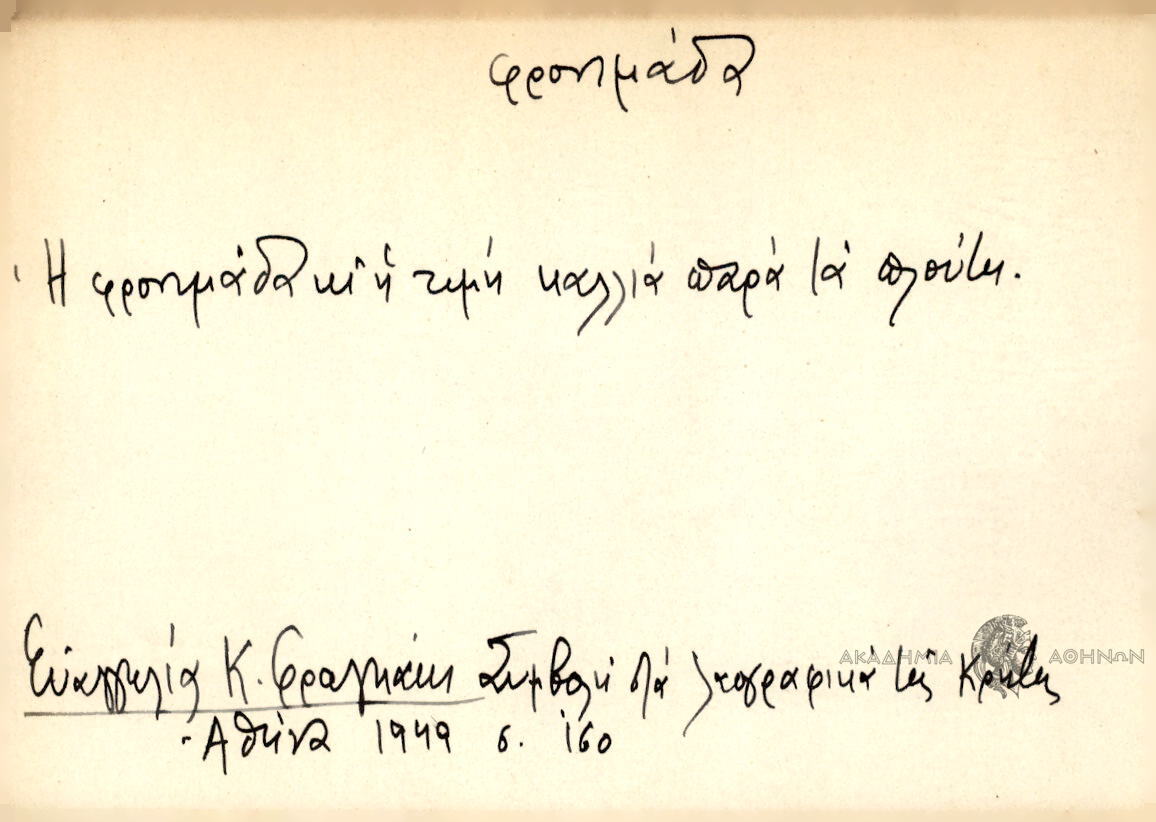 φρονημάδα
Ἡ φρονημάδα κι ἡ τιμή καλλιά παρά τά πλούτη.
Εὐαγγελία Κ. Φραγκάκι Συμβολή στά λαογραφικά τῆς Κρήτης
ΑΚΑΔΗΜΙΑ ΑΘΗΝΩΝ
Ἀθήνα 1949 σ. 160